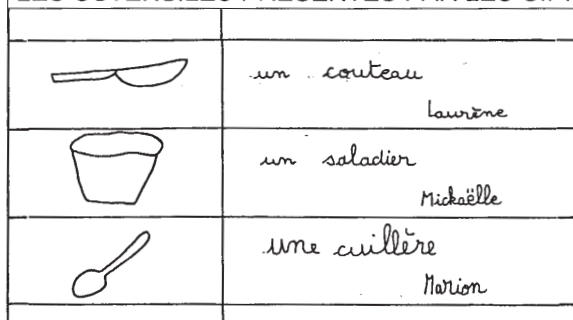 un couteau
Laurène
un saladier
Mickaëlle
une cuillère
Marion